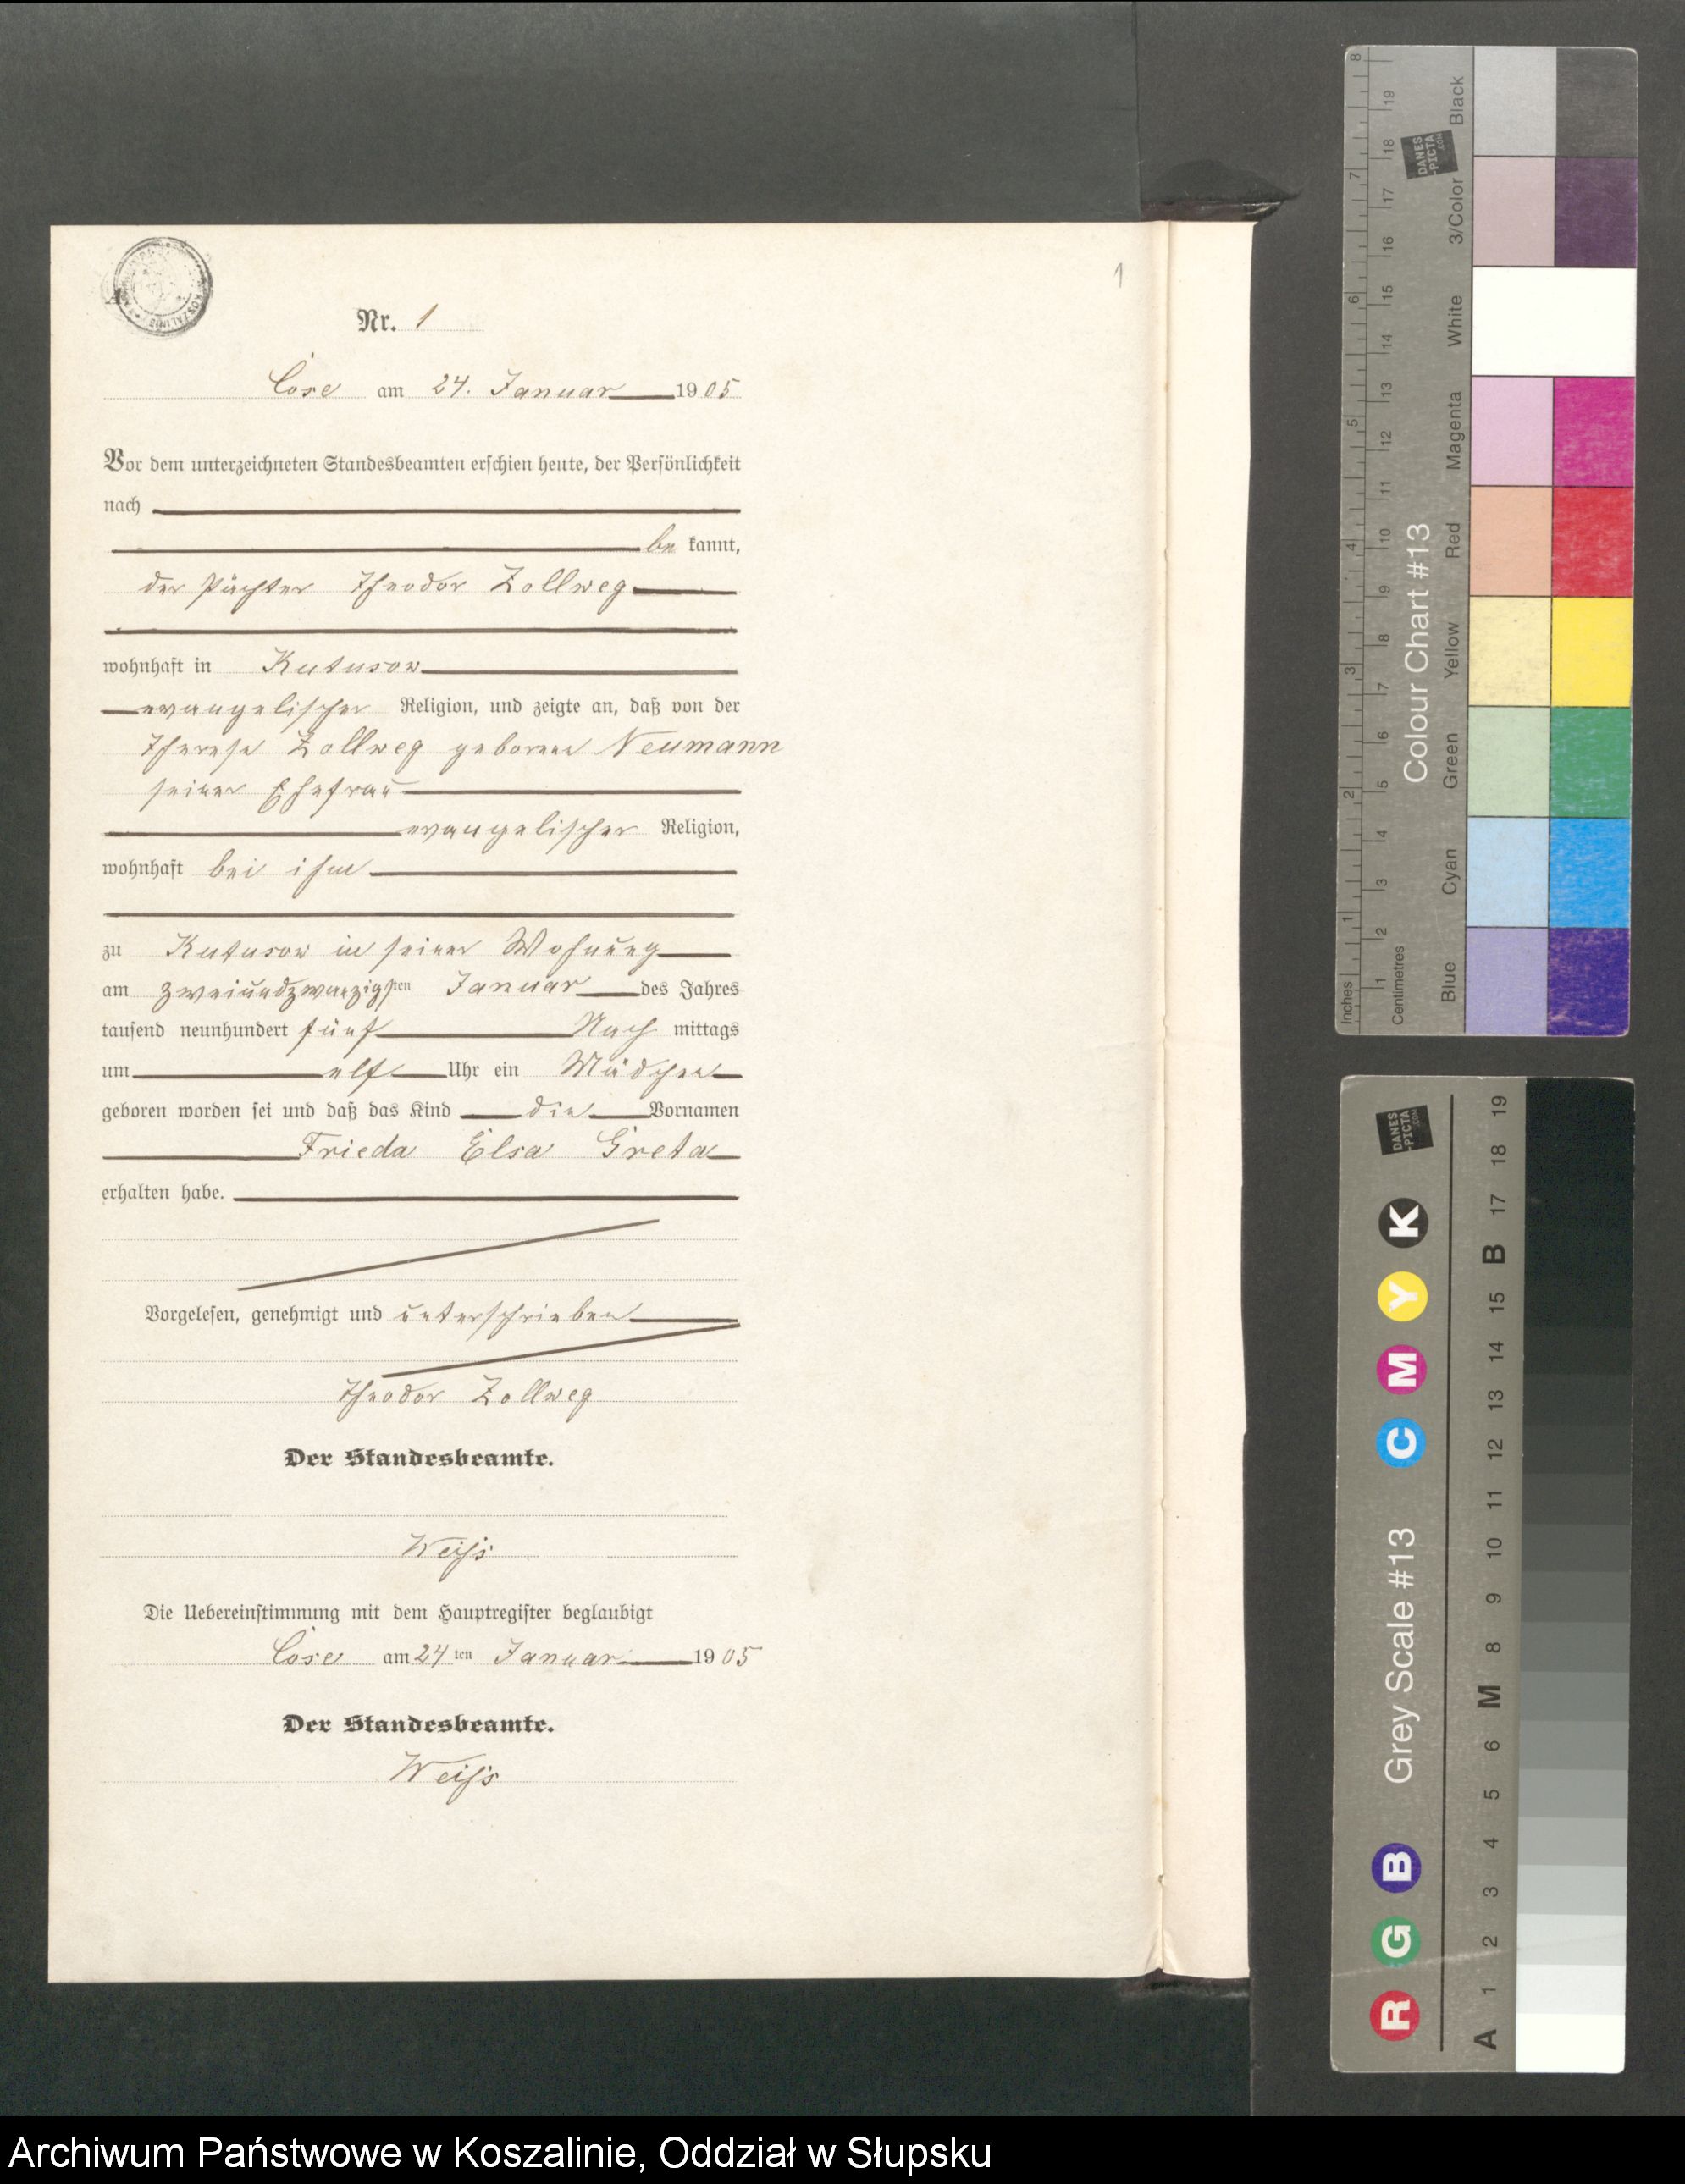 1
Nr. 1
Cose am 24. Januar 1905
Vor dem unterzeichneten Standesbeamten erschien heute, der Persönlichkeit
nach
be kannt,
der Pächter Theodor Zollweg
wohnhaft in Kutusow
evangelischer Religion, und zeigte an, daß von der
Therese Zollweg geborene Neumann
seiner Ehefrau
evangelischer Religion,
wohnhaft bei ihm
zu Kutusow in seiner Wohnung
am zweiundzwanzigsten Januar des Jahres
tausend neunhundert fünf Nach mittags
um elf Uhr ein Mädchen
geboren worden sei und daß das Kind die Vornamen
Frieda Elsa Greta
erhalten habe.
Vorgelesen, genehmigt und unterschrieben
Theodor Zollweg
Der Standesbeamte.
Weiss
Die Uebereinstimmung mit dem Hauptregister beglaubigt
Cose am 24ten Januar 1905
Der Standesbeamte.
Weiss
Inches 1 2 3 4 5 6 7 8
Centimetres 1 2 3 4 5 6 7 8 9 10 11 12 13 14 15 16 17 18 19
Colour Chart #13
DANES
-PICTA
.COM
Blue Cyan Green Yellow Red Magenta White 3/Color Black
R G B Grey Scale #13 C M Y K
DANES
-PICTA
.COM
A 1 2 3 4 5 6 M 8 9 10 11 12 13 14 15 B 17 18 19
Archiwum Państwowe w Koszalinie, Oddział w Słupsku